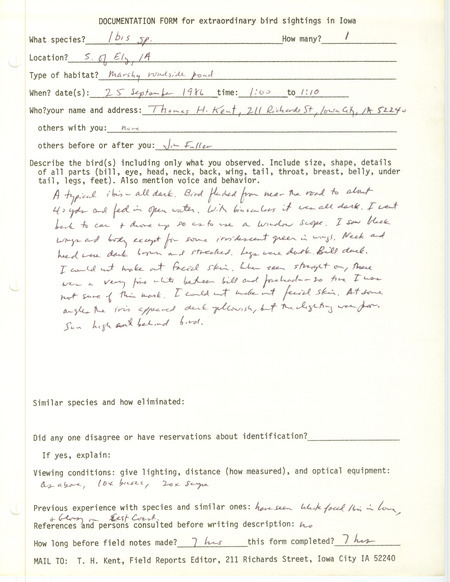 DOCUMENTATION FORM for extraordinary bird sightings in Iowa
What species? Ibis sp. How many? 1
Location? S. of Ely, IA
Type of habitat? Marshy roadside pond
When? date(s): 25 September 1986 time: 1:00 to 1:10
Who?your name and address: Thomas H. Kent, 211 Richards St, Iowa City, IA 52240
others with you: none
others before or after you: Jim Fuller
Describe the bird(s) including only what you observed. Include size, shape, details
of all parts (bill, eye, head, neck, back, wing, tail, throat, breast, belly, under
tail, legs, feet). Also mention voice and behavior.
A typical ibis - all dark. Bird flushed from near the road to about
40 yds and fed in open water. With binoculars it was all dark. I went
back to car + drove up so as to use a window scope. I saw black
wings and body except for some irridescent green in wings. Neck and
head were dark brown and streaked. Legs were dark. Bill dark.
I could not make out facial skin. When seen straight on, there
was a very fine white between bill and forehead - so fine I was
not sure of this mark. I could not make out facial skin. At some
angles the iris appeared dark yellowish, but the lighting was poor.
Sun high and behind bird.
Similar species and how eliminated:
Did any one disagree or have reservations about identification?
If yes, explain:
Viewing conditions: give lighting, distance (how measured), and optical equipment:
as above, 10x binocs, 20x scope
Previous experience with species and similar ones: have seen White faced Ibis in Iowa,
+ Glossy on East Coast
References and persons consulted before writing description: no
How long before field notes made? 7 hrs this form completed? 7 hrs
MAIL TO: T. H. Kent, Field Reports Editor, 211 Richards Street, Iowa City IA 52240